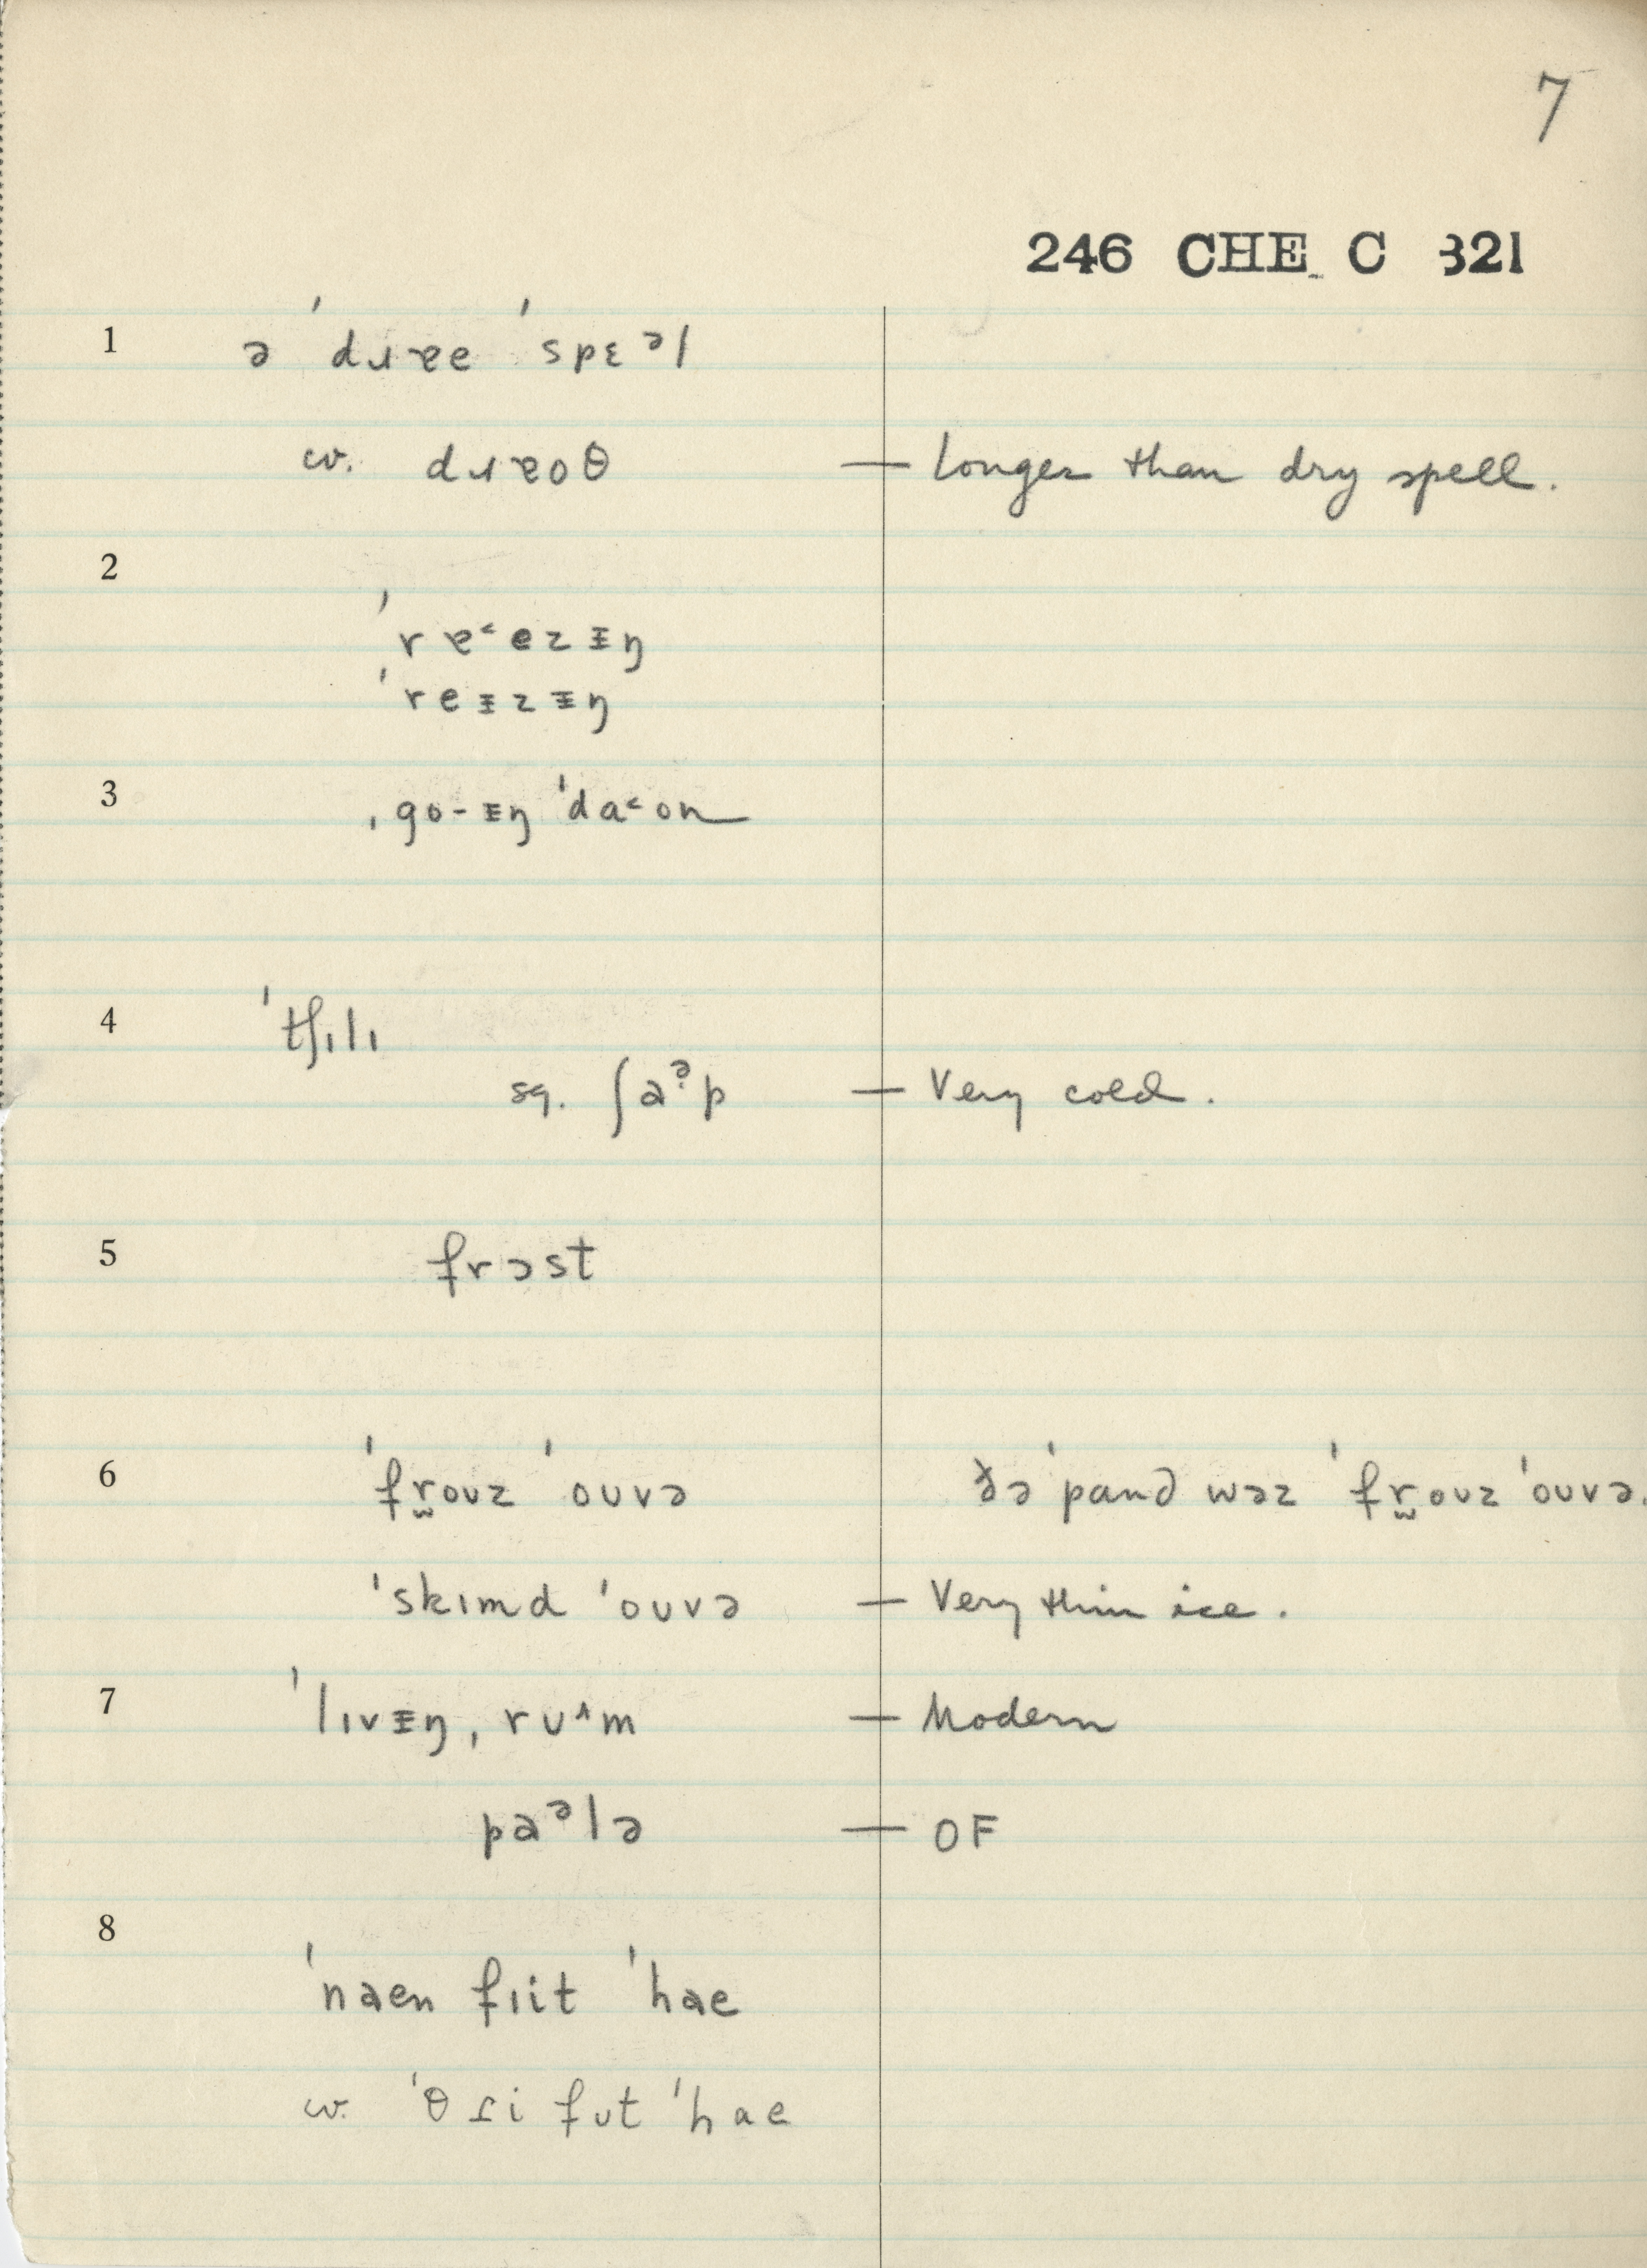 7
246 CHE C 321
1 ə ˈdɹɐe ˈspɛᵊl
cv. dɹɐoθ — Longer than dry spell.
2
ˈrɐ˂ezᵻŋ
ˈreᵻzᵻŋ
3 ˌgo-ᵻŋ ˈda˂on
4 ˈtʃɪlɪ
sq. ʃaᵊ̣p — Very cold.
5 frɔst
6 ˈfr̫oʊz ˈoʊvə ðə ˈpand wəz ˈfr̫oʊz ˈoʊvə.
ˈskɪmd ˈoʊvə — Very thin ice.
7 ˈlɪvᵻŋ ˌrʊ˄m — Modern
paᵊlə — OF
8
ˈnaen fɪit ˈhae
cv. ˈθɾi fʊt ˈhae